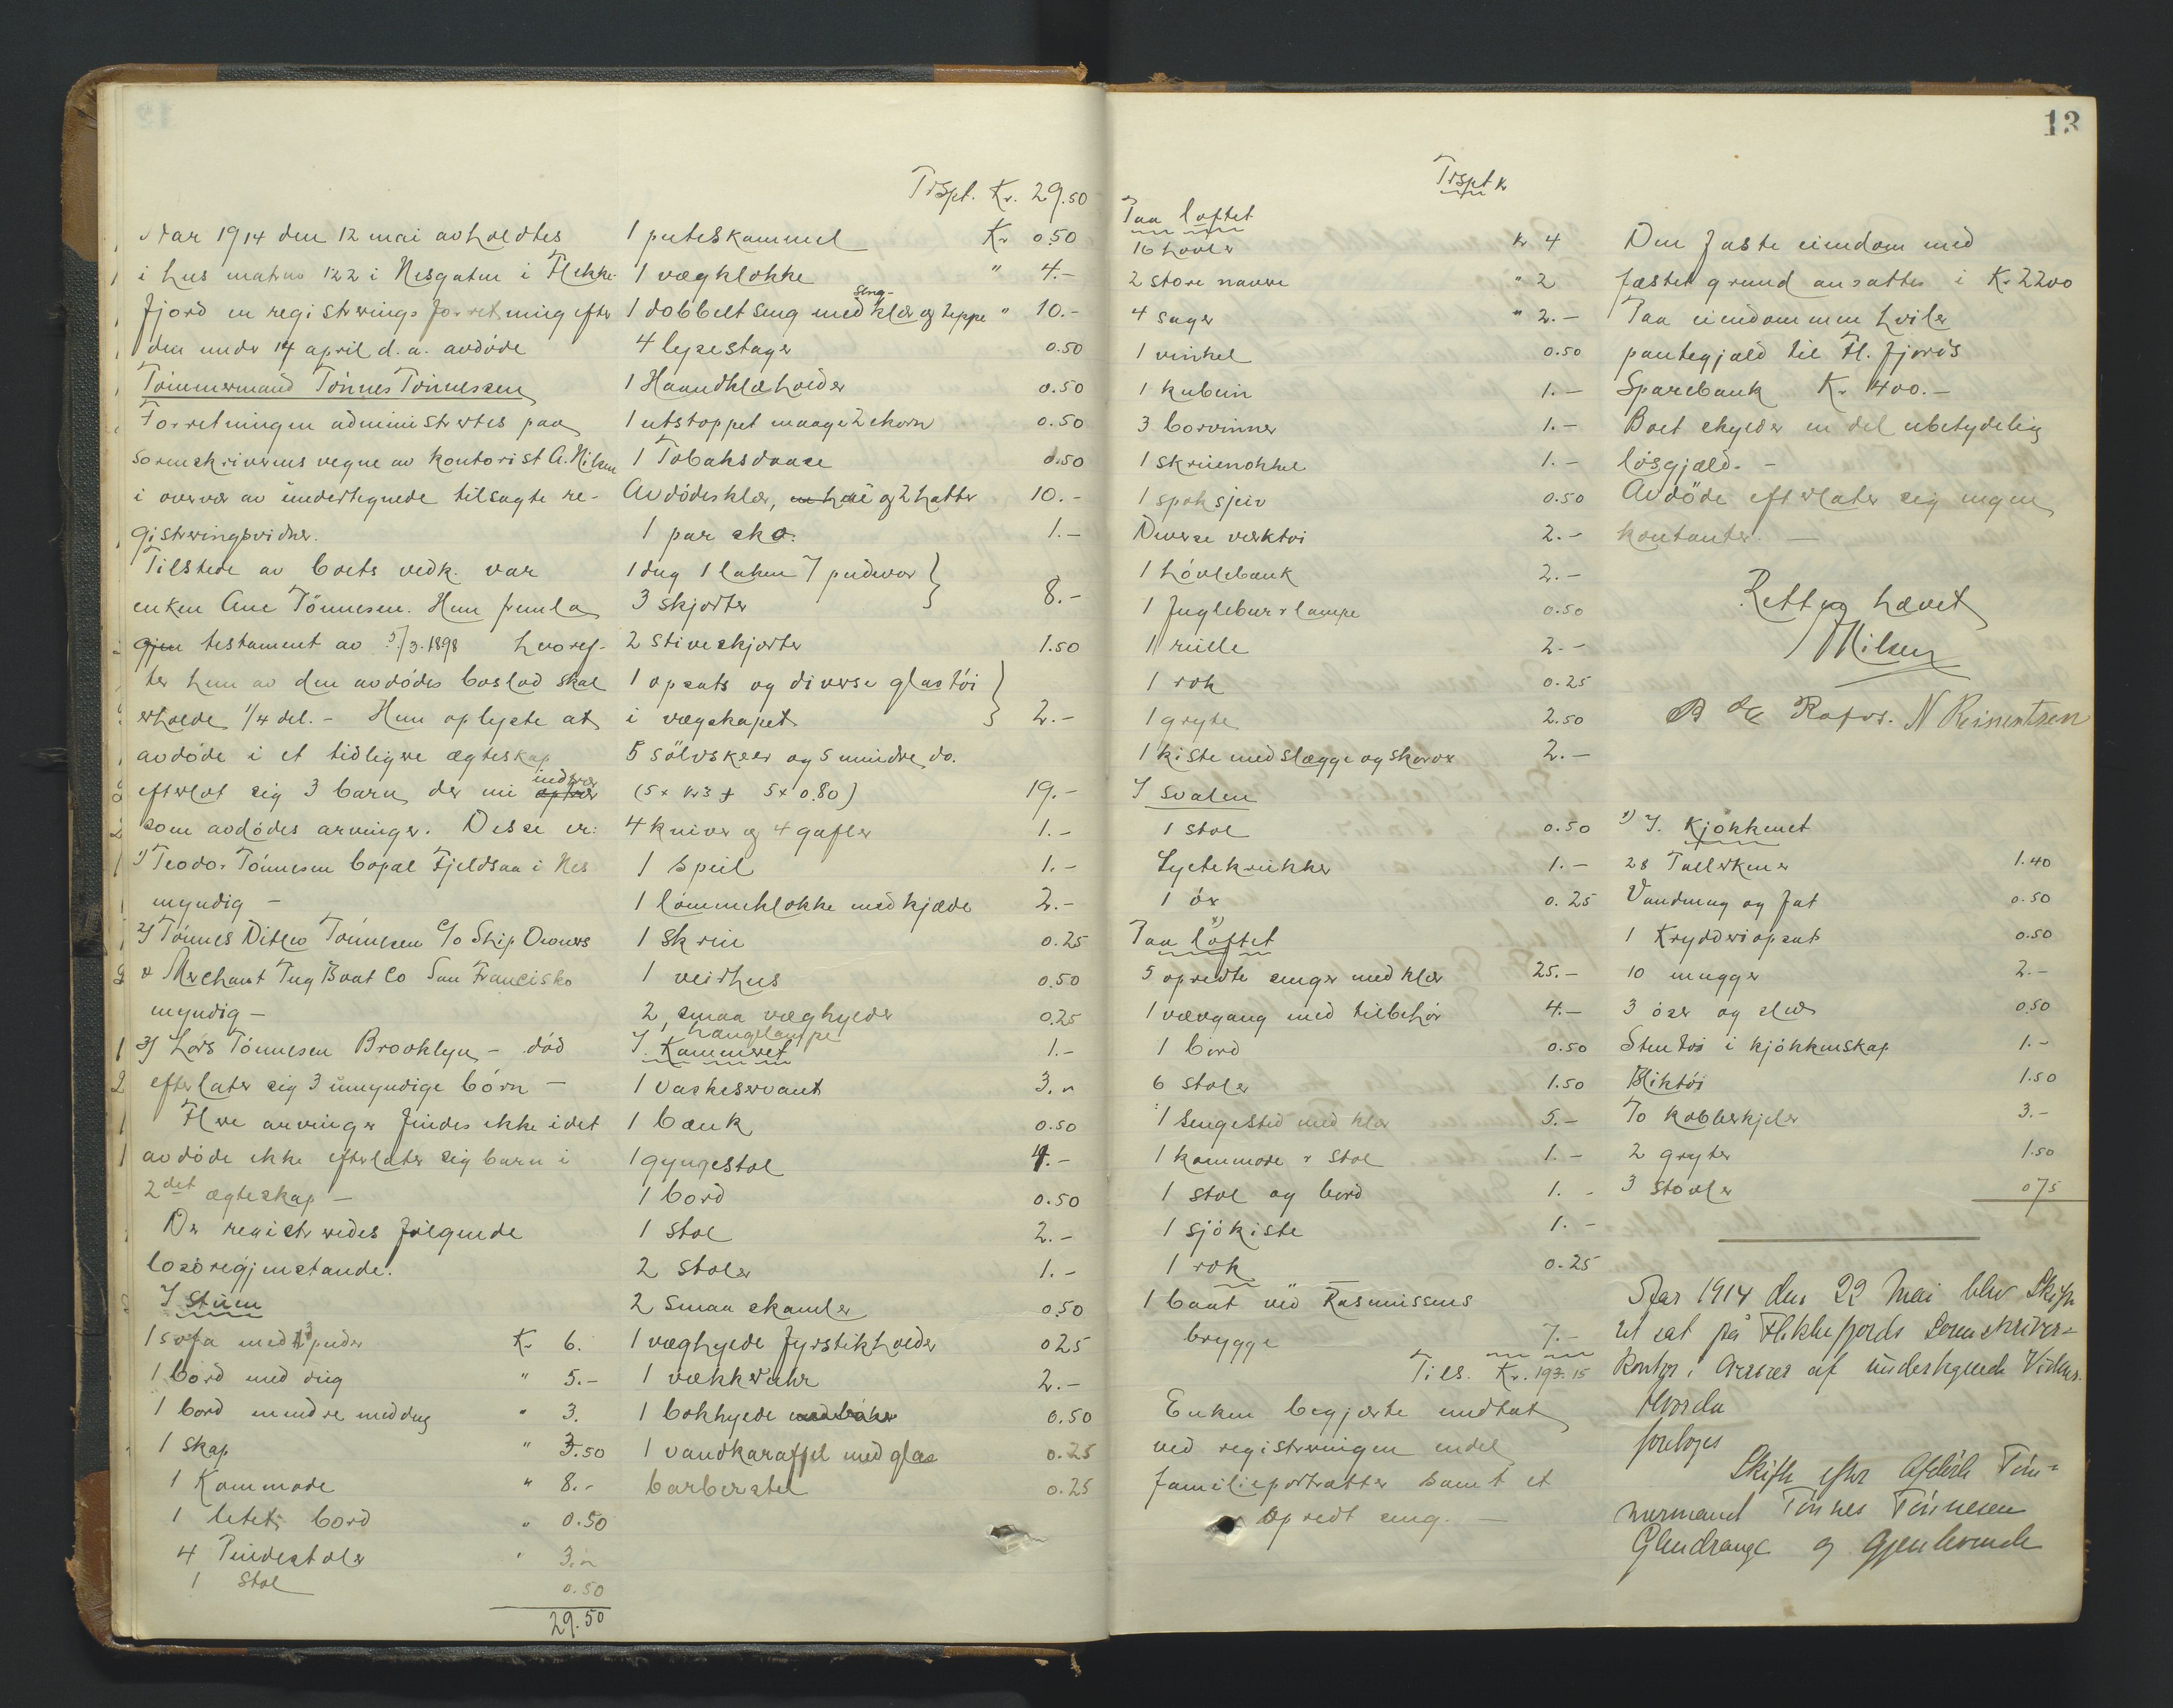 13
Aar 1914 den 12 mai avholdtes
i hus matno 122 i Nesgaten i Flekke-
fjord en registreringsforretning efter
den under 14 april d.a. avdöde
Tömmermand Tönnes Tönnessen
Forretningen administrertes paa
sorenskriverens vegne av kontorist A. Nilsen
i overvær av undertegnede tilsagte re-
gistreringsvidner.
Tilstede av boets vedk. var
enken Ane Tönnesen. Hun fremla
gjen testament av 5/3.1898 hvoref-
ter hun av den avdödes boslod skal
erholde 1/4 del. - Hun oplyste at
avdöde i et tidligere ægteskap
efterlot sig 3 barn, der nu
som avdödes arvinger. Disse er:
1) Teodor Tönnesen bopæl Fjeldsaa i Nes
myndig -
2) Tönnes Ditlev Tönnesen c/o Ship Owners
& Merchant Tug Boat Co San Francisko
myndig -
3) Lars Tönnesen Brooklyn - död
efterlater sig 3 umyndige börn -
Flere arvinger findes ikke idet
avdöde ikke efterlater sig barn i
2det ægteskap -
Der registreredes fölgende
lösöregjenstande.
I stuen
1 sofa med 3 puder Kr 6.
1 bord med dug " 5.-
1 bord mindre med dug " 3.
1 skap " 3.50
1 Kommode " 8.-
1 litet bord " 0.50
4 Pindestoler " 3.-
1 stol 0.50
29.50
Trspt. Kr. 29.50
1 puteskammel Kr 0.50
1 vægklokke " 4.-
1 dobbelt seng med seng-klær og teppe " 10.-
4 lysestager 0.50
1 Haandklæholder 0.50
1 utstoppet maage 2 ekorn 0.50
1 Tobaksdaase 0.50
Avdödes klær, og 2 hatter 10.-
1 par sko. 1.-
1 dug 1 laken 7 pudevar }
3 skjorter } 8.-
2 stiveskjorter 1.50
1 opsats og diverse glastöi }
i vægskapet } 2.-
5 sölvskeer og 5 mindre do.
(5 x kr 3 + 5 x 0.80) 19.-
4 kniver og 4 gafler 1.-
1 speil 1.-
1 lommeklokke med kjæde 2.-
1 skrin 0.25
1 veirhus 0.50
2 smaa væghylder 0.25
1 hængelampe 1.-
I Kammeret
1 vaskeservant 3.-
1 bænk 0.50
1 gyngestol 4.-
1 bord 0.50
1 stol 2.-
2 stoler 1.-
2 smaa skamler 0.50
1 væghylde fyrstikholder 0.25
1 vækkeruhr 2.-
1 bokhylde med böker 0.50
1 vandkaraffel med glas 0.25
barberstel 0.25
Trspt kr
Paa loftet
16 hövler kr 4
2 store navere " 2
4 sager " 2.-
1 vinkel 0.50
1 kubein 1.-
3 borvinner 1.-
1 skruenökkel 1.-
1 spoksjeiv 0.50
Diverse verktöi 2.-
1 hövlebænk 2.-
1 fuglebur & lampe 0.50
1 rulle 2.-
1 rok 0.25
1 gryte 2.50
1 kiste med slægge og skarox 2.-
I svalen
1 stol 0.50
Syltekrukker 1.-
1 öx 0.25
Paa loftet
5 opredte senger med klær 25.-
1 vævgang med tilbehör 4.-
1 bord 0.50
6 stoler 1.50
1 sengested med klær 5.-
1 kommode & stol 1.-
1 stol og bord 1.-
1 sjökiste 1.-
1 rok 0.25
1 baat ved Rasmussens
brygge 7.-
Tils. Kr. 193.15
Enken begjærte undtat
ved registreringen endel
familieportrætter samt et
opredt seng. -
Den faste eiendom med
fæstet grund ansattes i Kr 2200
Paa eiendommen hviler
pantegjæld til Fl.fjords
Sparebank Kr 400.-
Boet skylder en del ubetydelig
lösgjæld. -
Avdöde efterlater sig ingen
kontanter. -
Rett og hævet
Nilsen
N Reinertsen
1) I. Kjökkenet
28 Tallerkener 1.40
Vandmug og fat 0.50
1 Krydderiopsats 0.50
10 mugger 2.-
3 öser og sleiv 0.50
Stentöi i kjökkenskap 1.-
Bliktöi 1.50
To kobberkjeler 3.-
2 gryter 1.50
3 stoler 0.75
Aar 1914 den 22 Mai blev Skifte-
ret sat på Flekkefjords Sorenskriver-
kontor i Overvær af undertegnede Vidner.
Hvorda
foretoges
Skifte efter Afdöde Töm-
mermand Tönnes Tönnesen
Glendrange og gjenlevende